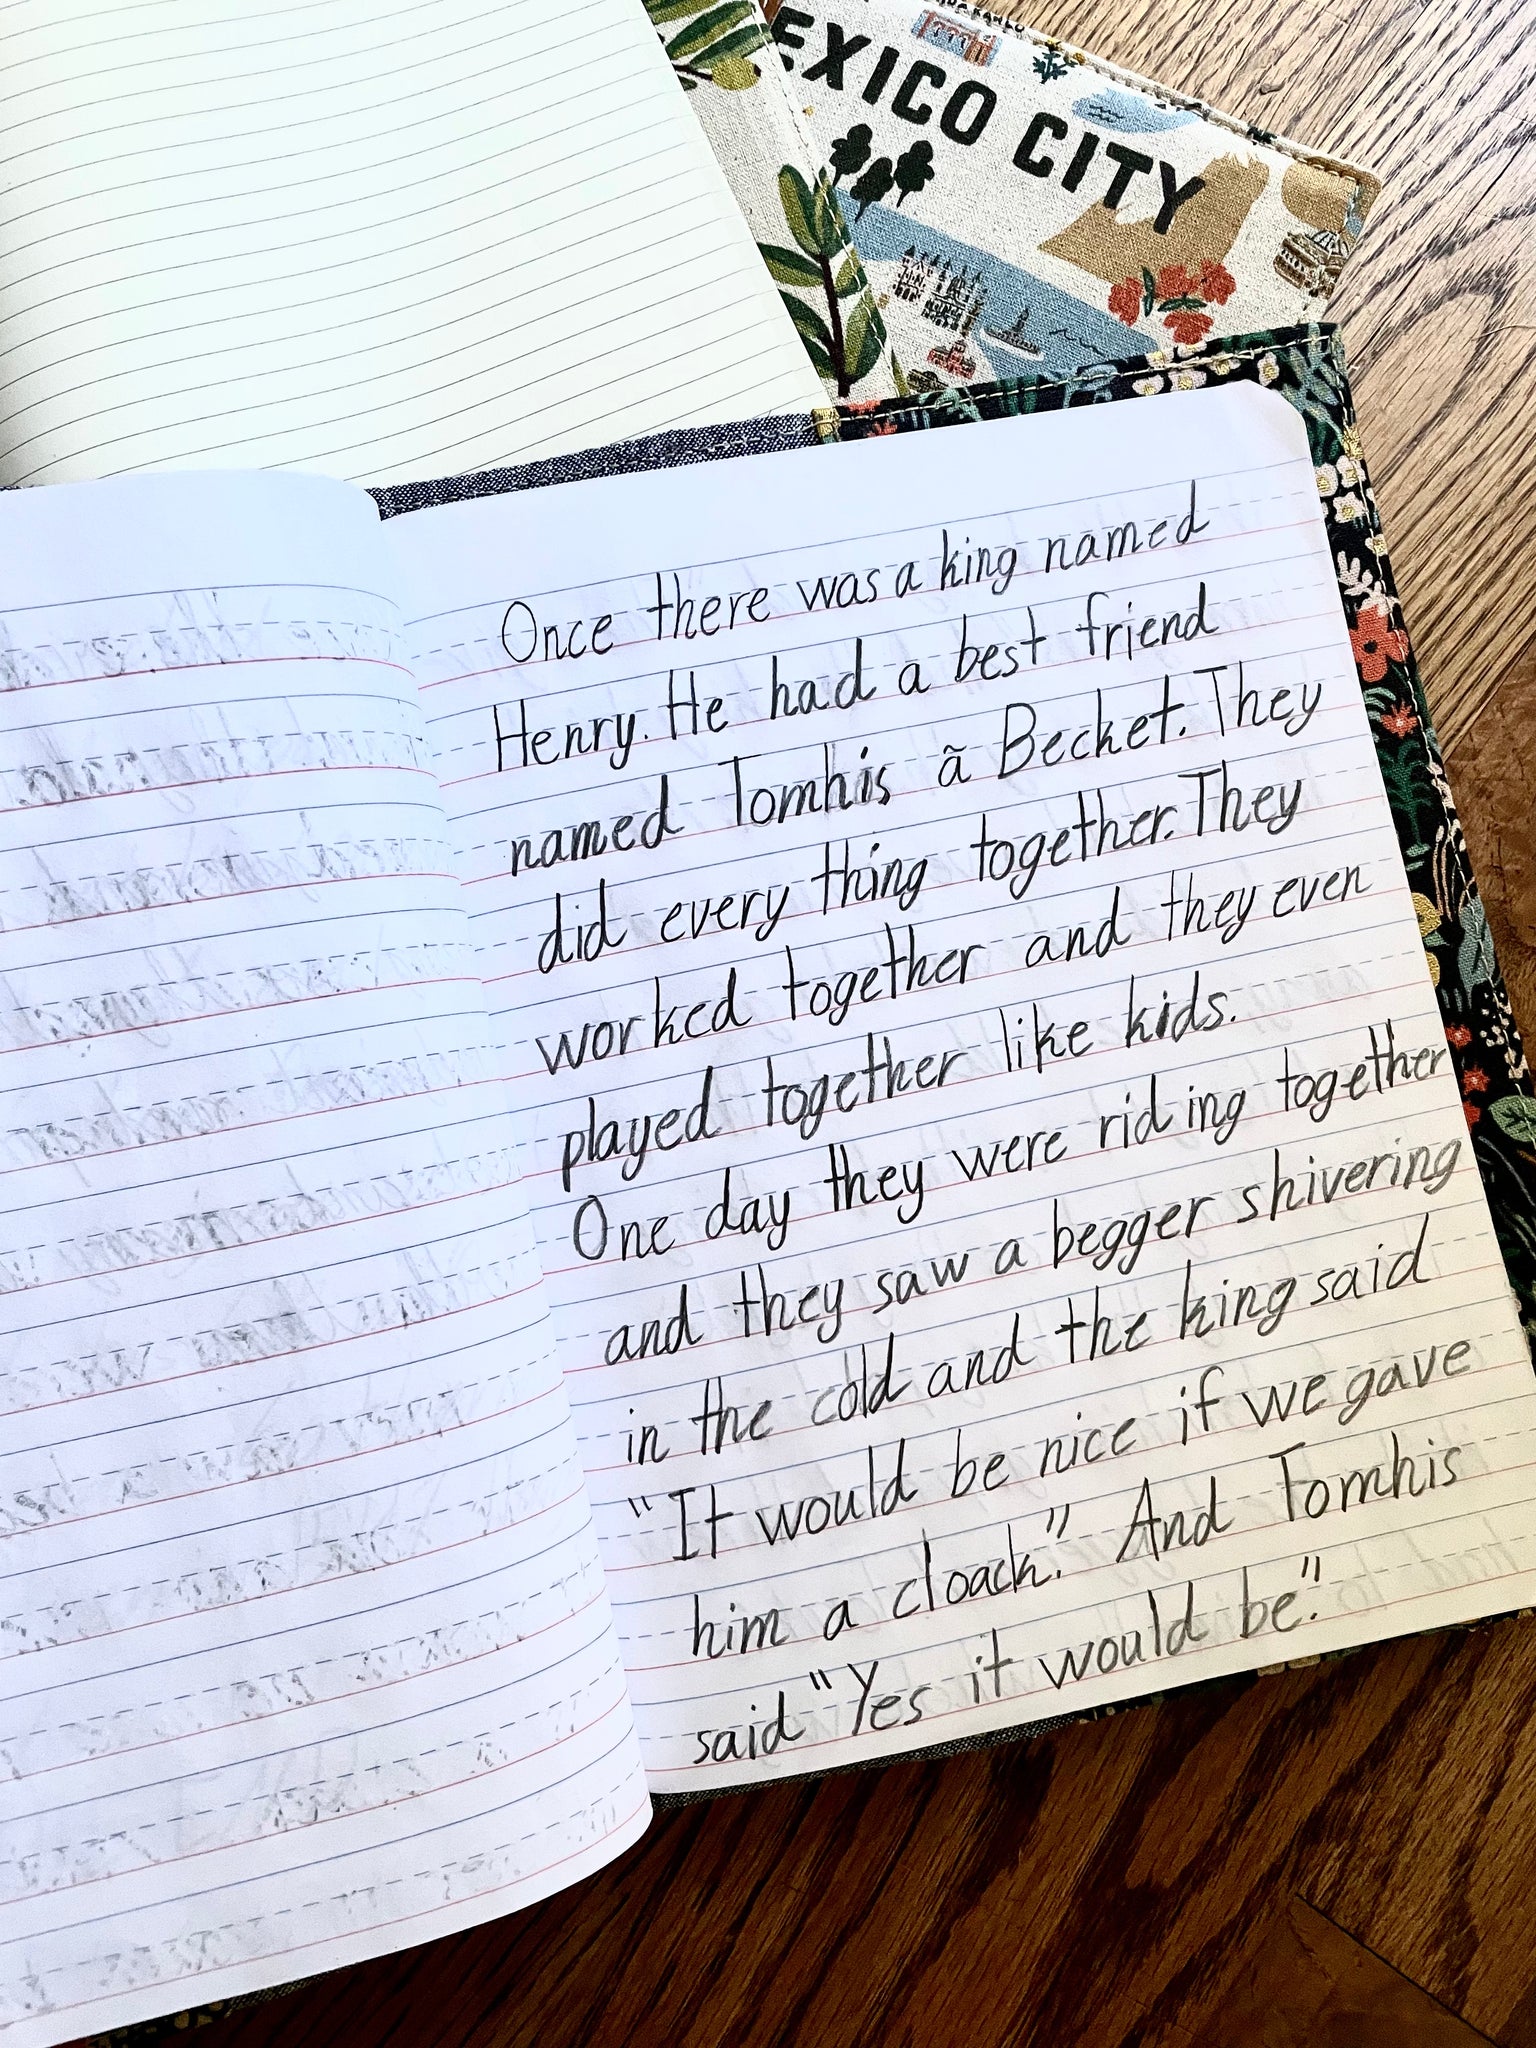 EXICO CITY
Once there was a king named
Henry. He had a best friend
named Tomhis ã Becket. They
did every thing together. They
worked together and they even
played together like kids.
One day they were riding together
and they saw a begger shivering
in the cold and the king said
"It would be nice if we gave
him a cloack." And Tomhis
said "Yes it would be."